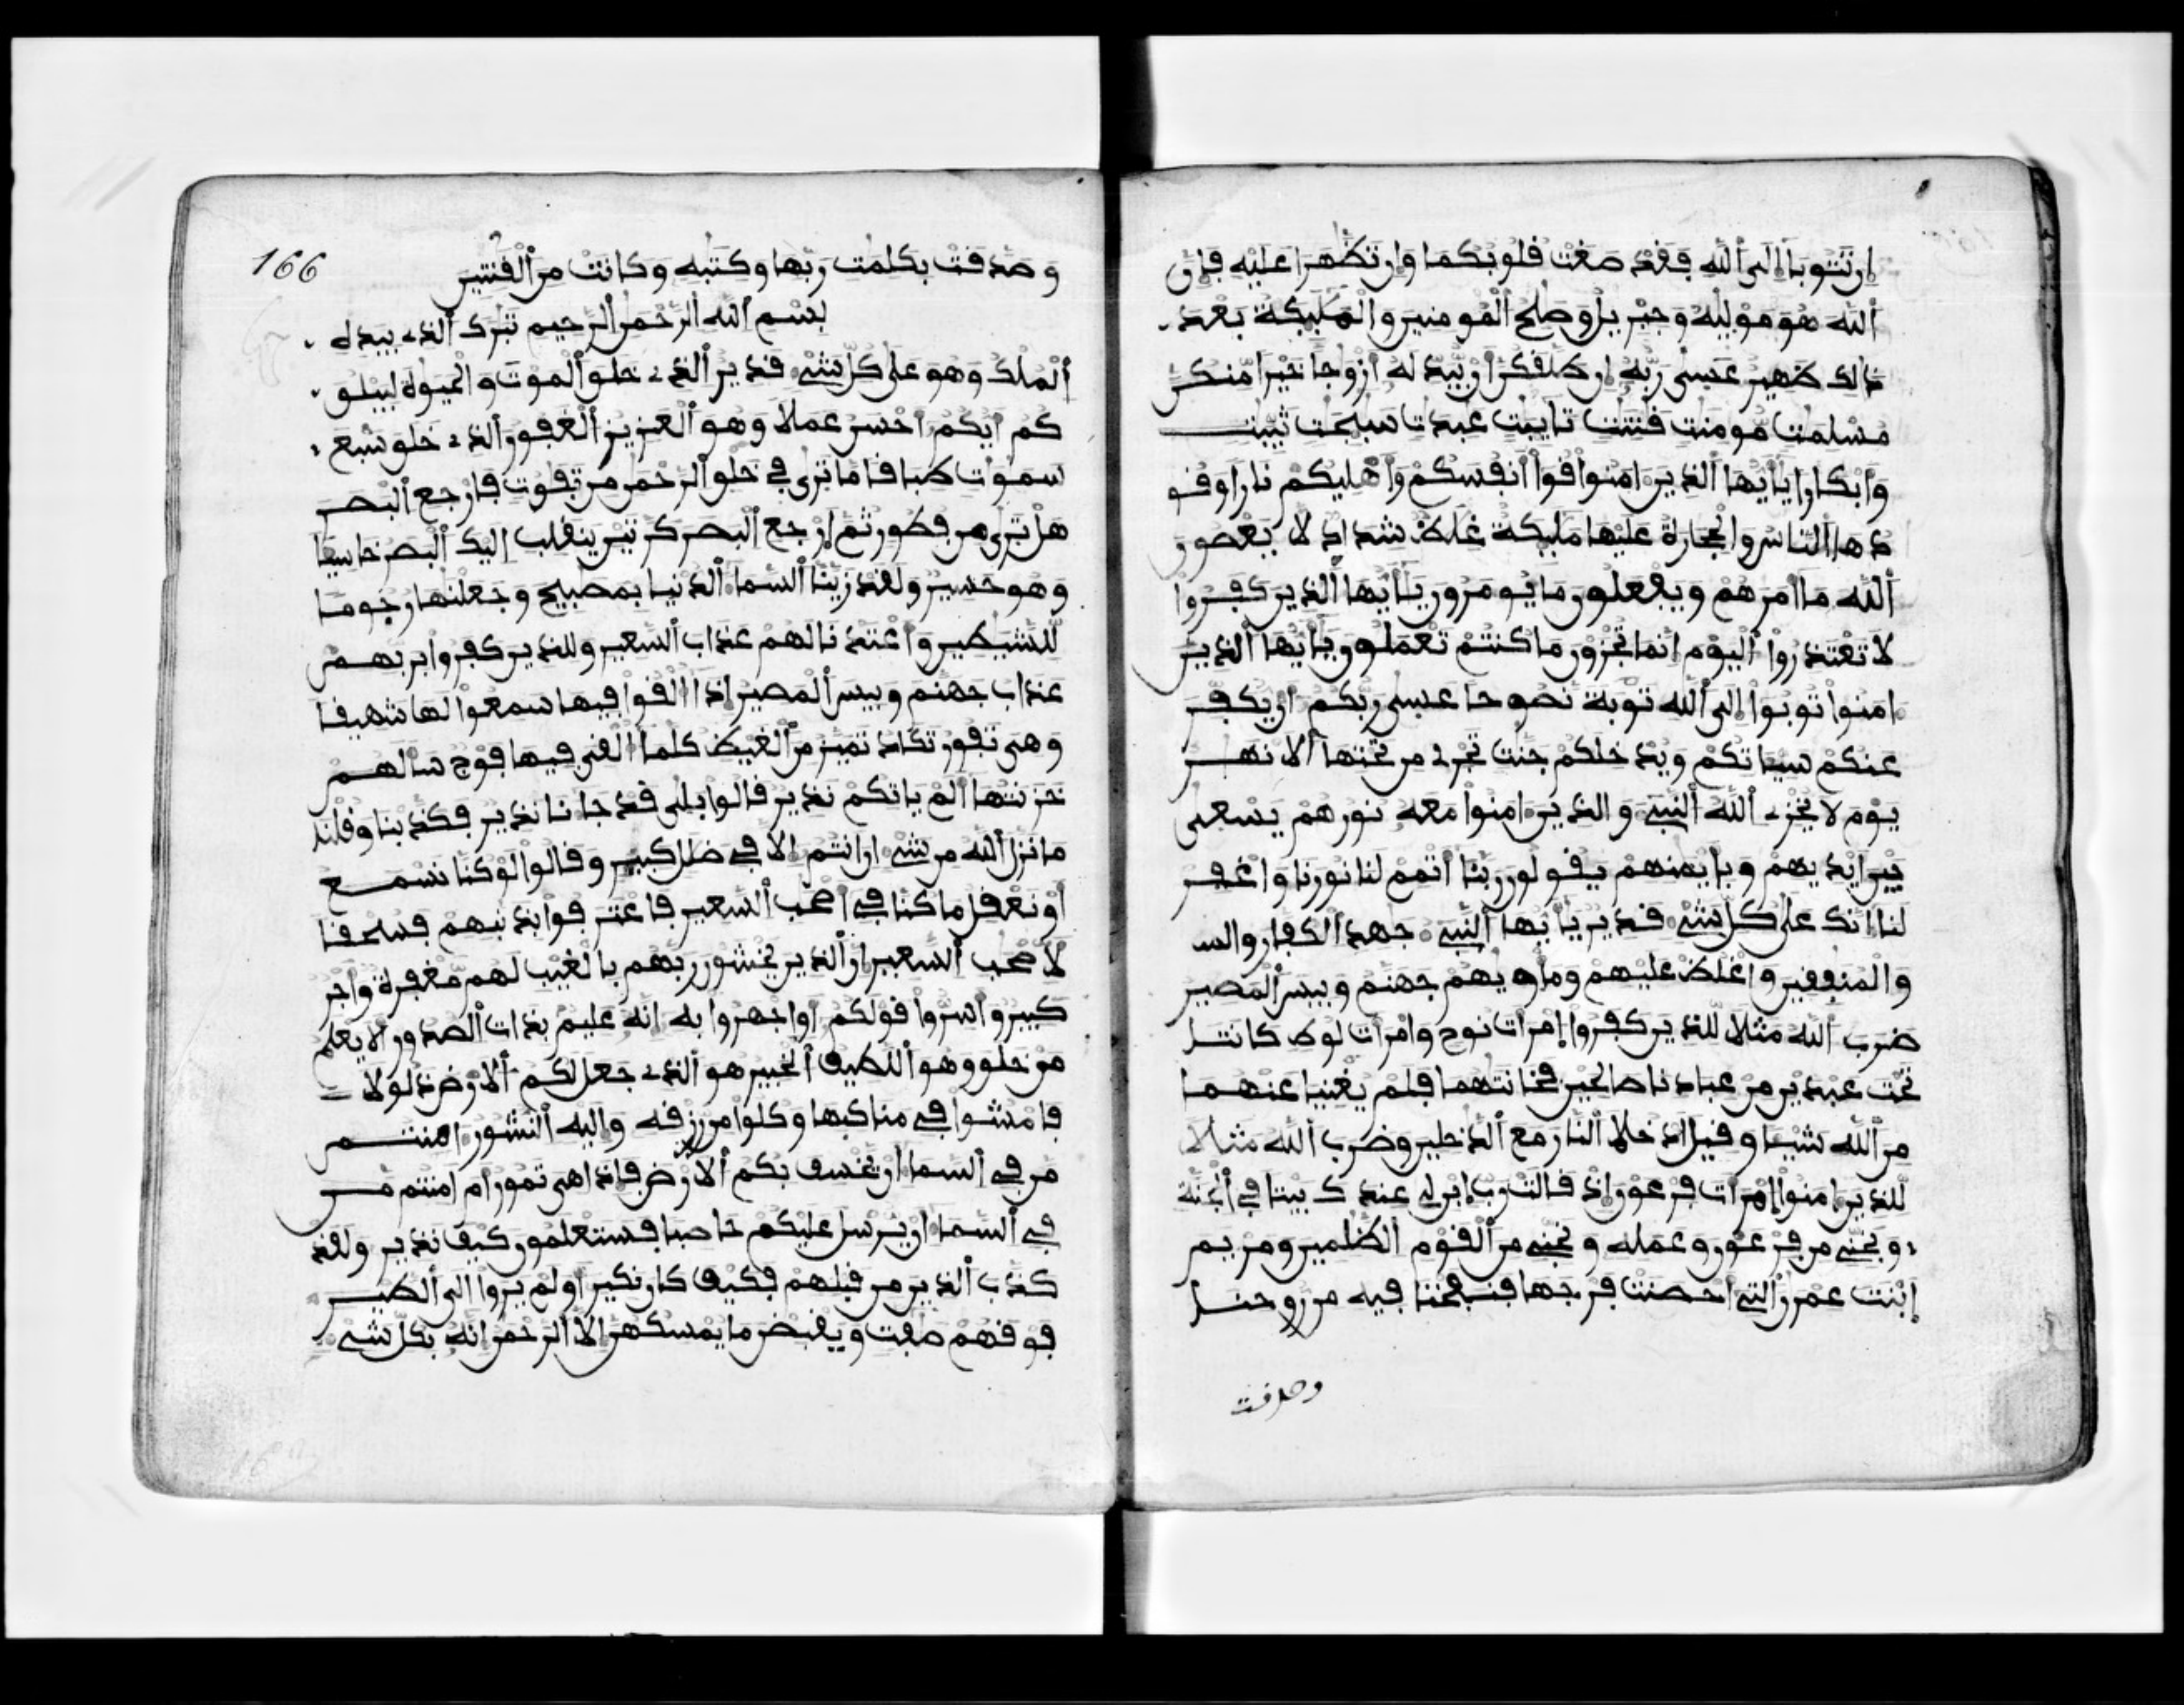 ان تتوبا الى الله فقد صغت قلوبكما وان تظهرا عليه فان
الله هو موليه وجبريل وصلح المومنين والمليكة بعد
ذالك ظهير عسى ربه ان طلقكن ان يبدله ازوجا خيرا منكن
مسلمت مومنت قنتت تايبت عبدت سيحت ثيبت
وابكارا يايها الذين امنوا قوا انفسكم واهليكم نارا وقو
دها الناس والحجارة عليها مليكة غلاظ شداد لا يعصون
الله ما امرهم ويفعلون ما يومرون يايها الذين كفروا
لا تعتذروا اليوم انما تجزون ما كنتم تعملون يايها الذين
امنوا توبوا الى الله توبة نصوحا عسى ربكم ان يكفر
عنكم سياتكم ويدخلكم جنت تجرى من تحتها الانهر
يوم لا يخزى الله النبى والذين امنوا معه نورهم يسعى
بين ايديهم وبايمنهم يقولون ربنا اتمم لنا نورنا واغفر
لنا انك على كل شى قدير يايها النبى جهد الكفار والمـ
والمنفقين واغلظ عليهم وماويهم جهنم وبيس المصير
ضرب الله مثلا للذين كفروا امرات نوح وامرات لوط كانتا
تحت عبدين من عبادنا صالحين فخانتهما فلم يغنيا عنهما
من الله شييا وقيل ادخلا النار مع الدخلين وضرب الله مثلا
للذين امنوا امرات فرعون اذ قالت رب ابن لى عندك بيتا فى الجنة
ونجنى من فرعون وعمله ونجنى من القوم الظلمين ومريم
ابنت عمرن التى احصنت فرجها فنفخنا فيه من روحنا
وصدقت
166
وصدقت بكلمت ربها وكتبه وكانت من القنتين
بسم الله الرحمن الرحيم تبرك الذى بيده
الملك وهو على كل شى قدير الذى خلق الموت والحيوة ليبلو
كم ايكم احسن عملا وهو العزيز الغفور الذى خلق سبع
سموات طباقا ما ترى فى خلق الرحمن من تفوت فارجع البصر
هل ترى من فطور ثم ارجع البصر كرتين ينقلب اليك البصر خاسيا
وهو حسير ولقد زينا السما الدنيا بمصبيح وجعلنها رجوما
للشيطين واعتدنا لهم عذاب السعير وللذين كفروا بربهم
عذاب جهنم وبيس المصير اذا القوا فيها سمعوا لها شهيقا
وهى تفور تكاد تميز من الغيظ كلما القى فيها فوج سالهم
خزنتها الم ياتكم نذير قالوا بلى قد جانا نذير فكذبنا وقلنا
ما نزل الله من شى ان انتم الا فى ضلل كبير وقالوا لو كنا نسمع
او نعقل ما كنا فى اصحب السعير فاعترفوا بذنبهم فسحقا
لاصحب السعير ان الذين يخشون ربهم بالغيب لهم مغفرة واجر
كبير واسروا قولكم او اجهروا به انه عليم بذات الصدور الا يعلم
من خلق وهو اللطيف الخبير هو الذى جعل لكم الارض ذلولا
فامشوا فى مناكبها وكلوا من رزقه واليه النشور امنتم
من فى السما ان يخسف بكم الارض فاذا هى تمور ام امنتم من
فى السما ان يرسل عليكم حاصبا فستعلمون كيف نذير ولقد
كذب الذين من قبلهم فكيف كان نكير اولم يروا الى الطير
فوقهم صفت ويقبضن ما يمسكهن الا الرحمن انه بكل شى